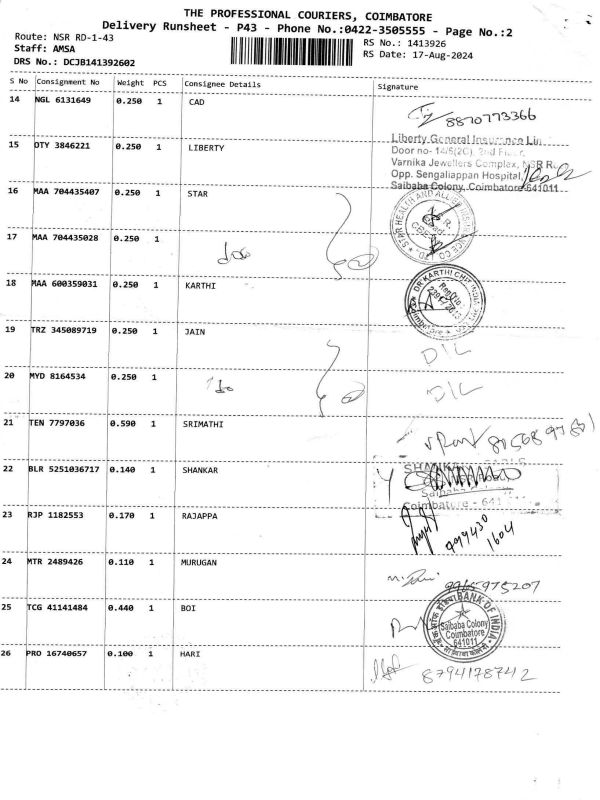 THE PROFESSIONAL COURIERS, COIMBATORE
Delivery Runsheet - P43 - Phone No.:0422-3505555 - Page No.:2
Route: NSR RD-1-43
Staff: AMSA
DRS No.: DCJB141392602
RS No.: 1413926
RS Date: 17-Aug-2024
S No Consignment No Weight PCS Consignee Details Signature
14 NGL 6131649 0.250 1 CAD
8870773366
15 OTY 3846221 0.250 1 LIBERTY
Liberty General Insurance Lim
Door no- 14/5(2C), 2nd Floor,
Varnika Jewellers Complex, NSR R
Opp. Sengaliappan Hospital,
Saibaba Colony, Coimbatore-641011
16 MAA 704435407 0.250 1 STAR
STAR HEALTH AND ALLIED INSURANCE CO
17 MAA 704435028 0.250 1
do
18 MAA 600359031 0.250 1 KARTHI
DR KARTHI
19 TRZ 345089719 0.250 1 JAIN
D/L
20 MYD 8164534 0.250 1
do
D/L
21 TEN 7797036 0.590 1 SRIMATHI
22 BLR 5251036717 0.140 1 SHANKAR
Saibaba
Coimbatore - 641
23 RJP 1182553 0.170 1 RAJAPPA
799430
1604
24 MTR 2489426 0.110 1 MURUGAN
9965975207
25 TCG 41141484 0.440 1 BOI
BANK OF INDIA
Saibaba Colony
Coimbatore
641011
26 PRO 16740657 0.100 1 HARI
8794178742